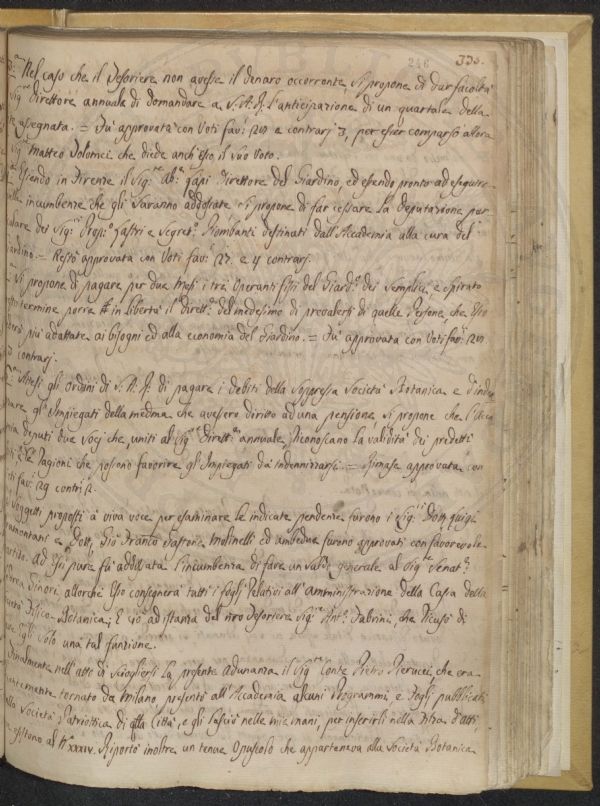 246 333.
Nel caso che il Tesoriere non avesse il denaro occorrente, si propone di dar facoltà
Sig.re Direttore annuale di domandare a S. A. R. l'anticipazione di un quartale della
assegnata. = Fu approvata con Voti fav: 27 e contrarj 3, per esser comparso allora
Sig.re Matteo Tolomei che diede anch'esso il suo Voto.
Essendo in Firenze il Sig.re Ab.e Zapi Direttore del Giardino, ed essendo pronto ad eseguire
incumbenze che gli saranno addossate si propone di far cessare la Deputazione per
dei Sig.ri Prop.o Lastri e Segret.o Piombanti destinati dall'Accademia alla cura del
Giardino. = Restò approvata con Voti fav: 27. e 4 contrarj.
Si propone di pagare per due Mesi i tre Operanti fissi del Giard.o dei Semplici, e spirato
termine porre in libertà il Dirett.e del medesimo di prevalersi di quelle Persone, che Esso
più adattate ai bisogni ed alla economia del Giardino. = Fu approvata con Voti fav:
3 contrarj.
Attesi gli Ordini di S. A. R. di pagare i debiti della soppressa Società Botanica e
gl'Impiegati della med.ma che avessero diritto ad una pensione, si propone che l'
deputi due Socj che, uniti al Sig.re Dirett.e annuale, riconoscano la validità dei predetti
e le Ragioni che possono favorire gl'Impiegati da indennizzarsi. = Rimase approvata con
fav: 29 contr: 2.
Soggetti proposti a viva voce per esaminare le indicate pendenze furono i Sig.ri Dott. Luigi
e Dott. Gio: Franco Pastorini Molinelli ed ambedue furono approvati con favorevole
partito. Ad Essi pure fu addossata l'incumbenza di fare un Saldo generale al Sig.re Senat.e
Ginori, allorchè Esso consegnerà tutti i fogli relativi all'amministrazione della Cassa della
Fisico-Botanica; E ciò ad istanza del nro Tesoriere Sig.re Ant.o Fabrini, che ricusò di
Egli solo una tal funzione.
Finalmente nell'atto di sciogliersi la presente Adunanza il Sig.re Conte Pietro Pierucci, che era
tornato da Milano presentò all'Accademia alcuni Programmi, e Fogli pubblicati
Società Patriottica di q.lla Città, e gli lasciò nelle mie mani, per inserirli nella Filza d'atti,
esistono al N.o XXXIV. Riportò inoltre un tenue Opuscolo che apparteneva alla Società Botanica